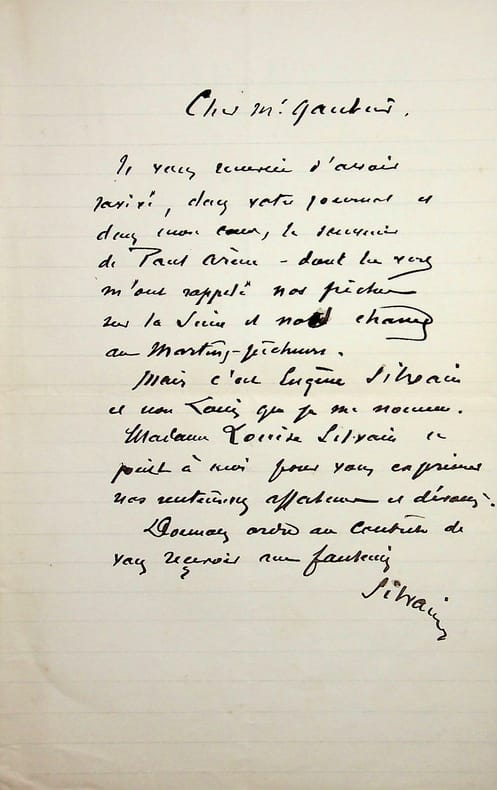 Cher Mr Gaubert.
Je vous remercie d'avoir
ravivé, dans votre journal et
dans mon cœur, le souvenir
de Paul Arène - dont les vers
m'ont rappelé nos pêches
sur la Seine et nos chasses
au Martins-pêcheurs.
Mais c'est Eugène Silvain
et non Louis que je me nomme.
Madame Louise Silvain se
joint à moi pour vous exprimer
nos sentiments affectueux et dévoués.
Donnons ordre au Contrôle de
vous recevoir aux fauteuils
Silvain